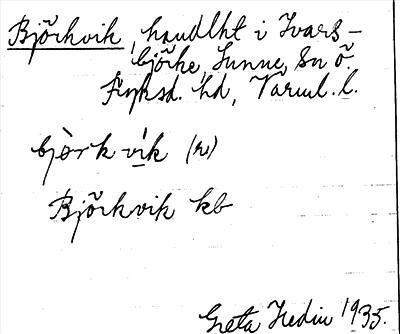 Björkvik, handlht i Ivars-
björke, Sunne, Sn ö.
Fryksd. hd, Värml. l.
björk vik (n)
Björkvik kb
Greta Hedin 1935.